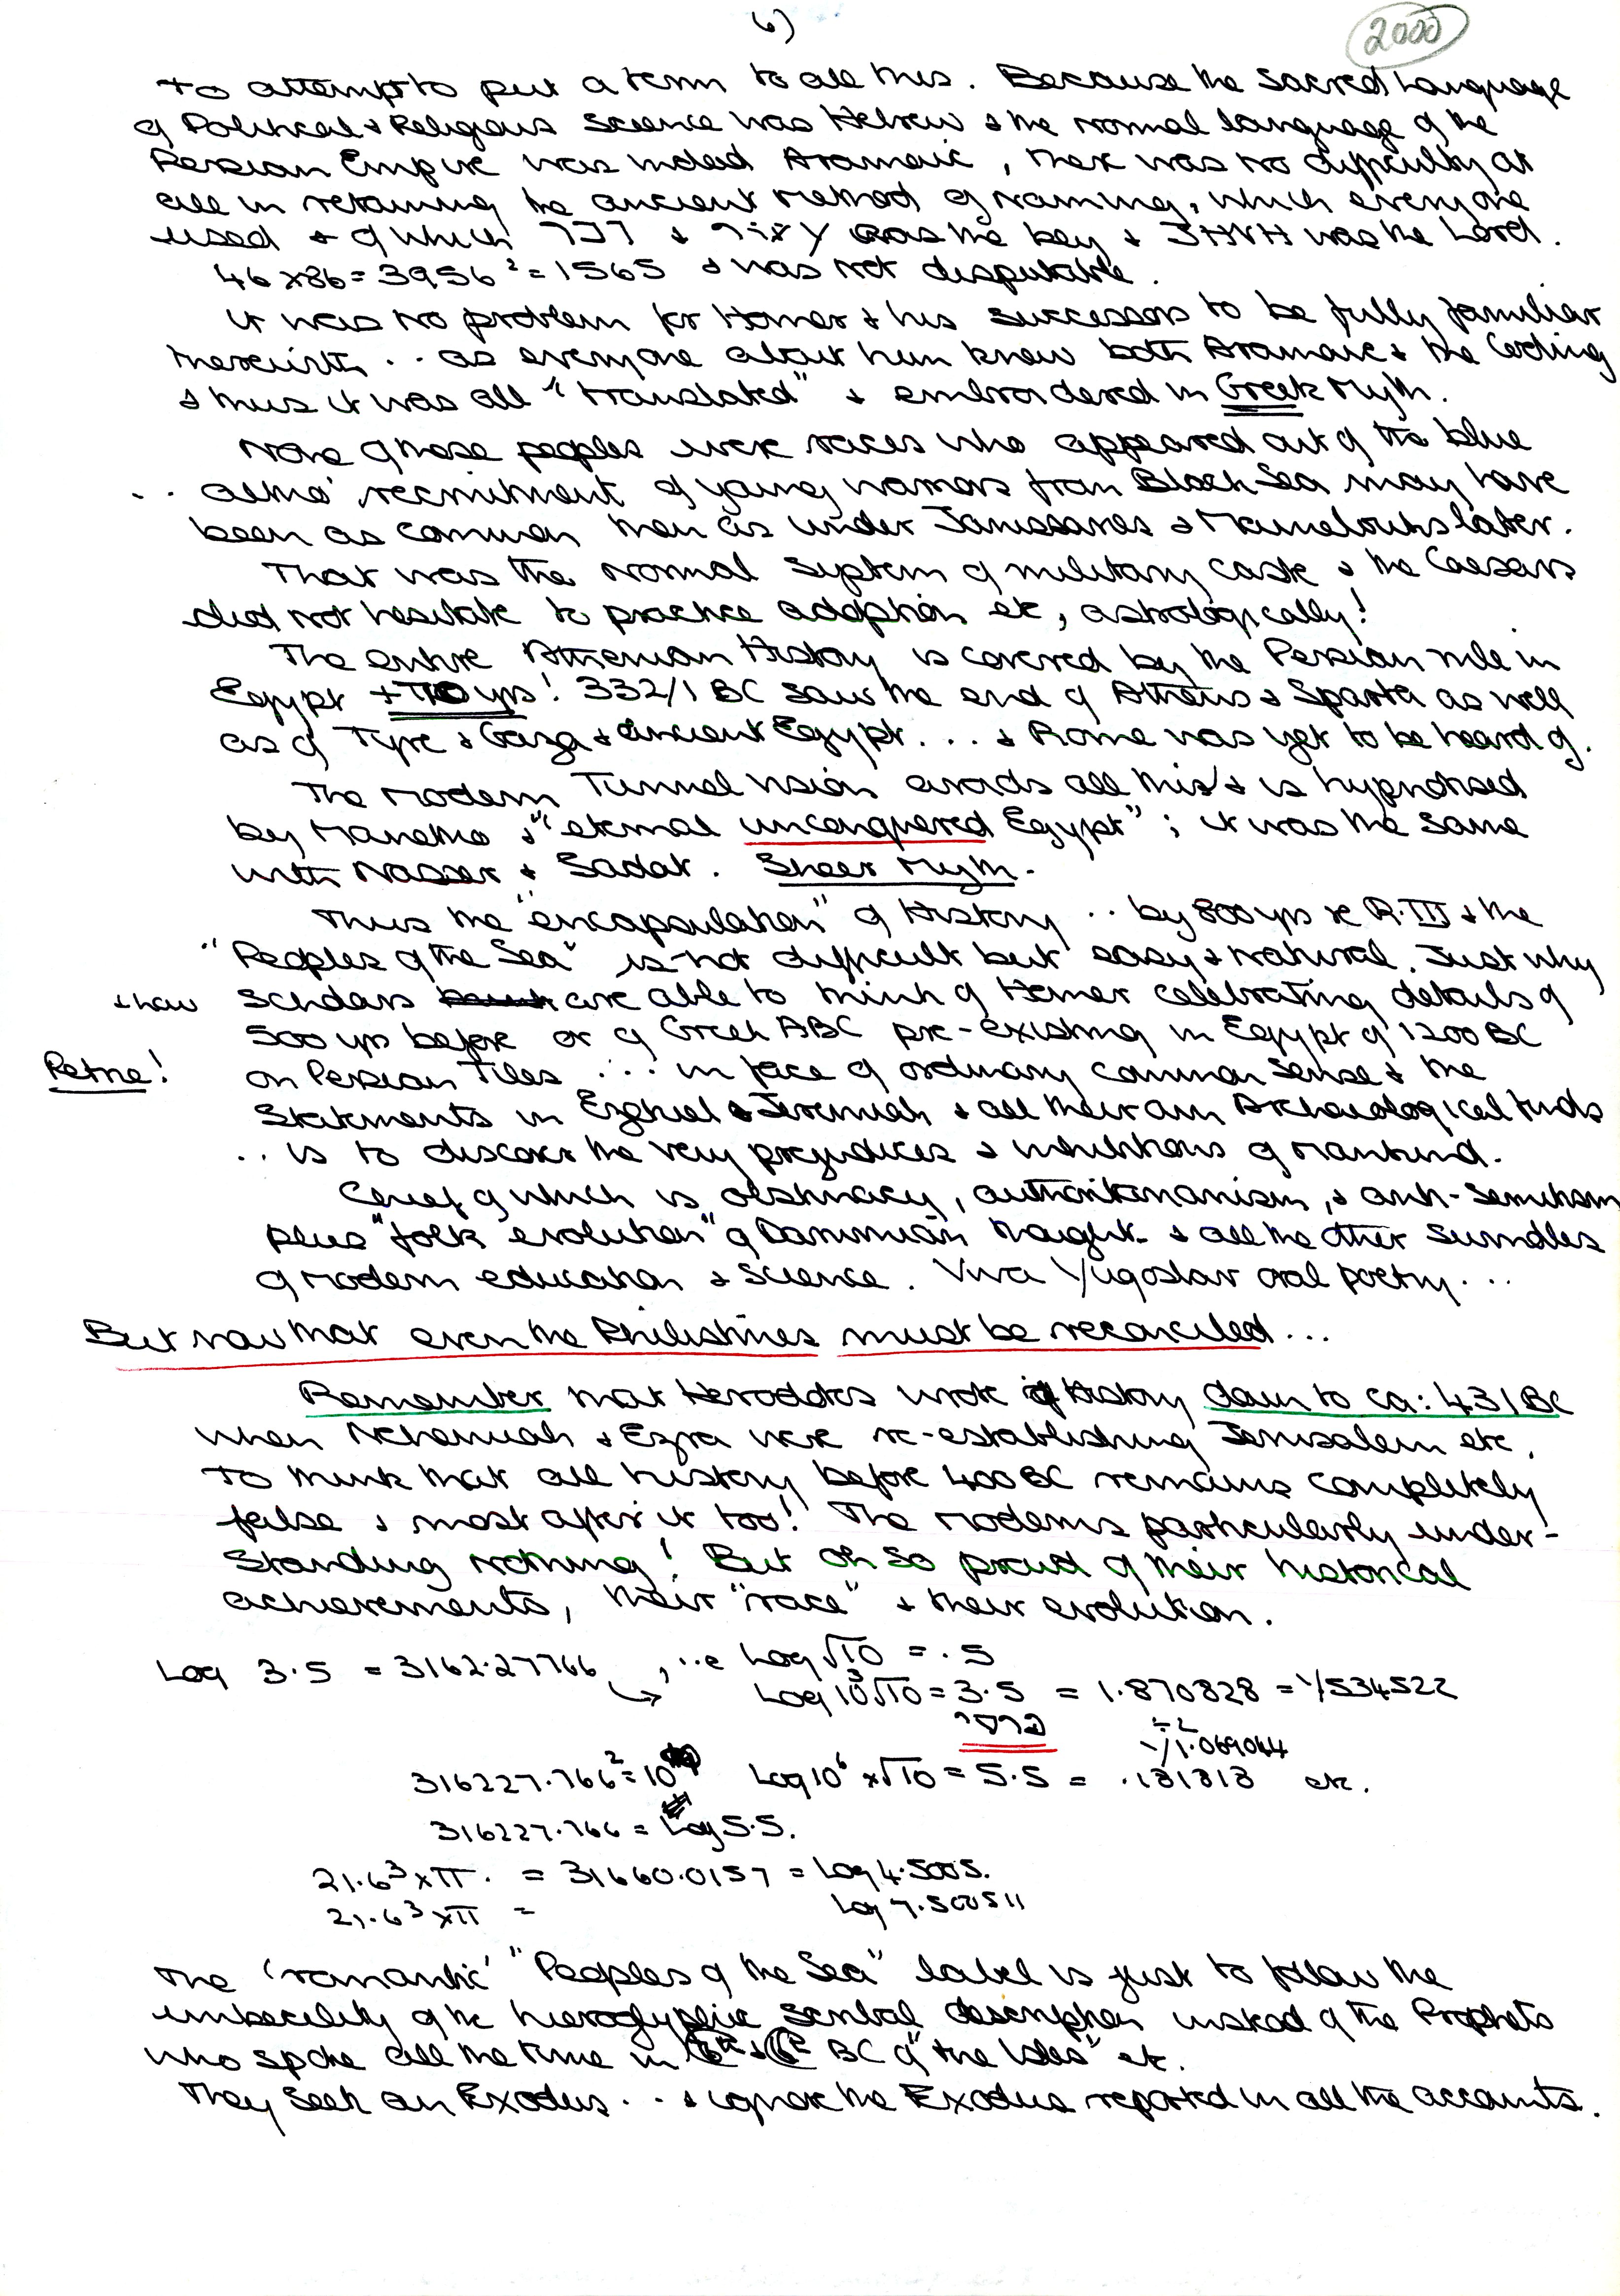 6)
2000
to attempt to put a term to all this. Because the Sacred Language
of Political & Religious Science was Hebrew & the normal language of the
Persian Empire was indeed Aramaic, there was no difficulty at
all in retaining the ancient method of naming, which everyone
used & of which & was the key & JHVH was the Lord.
46 x 86 = 3956² = 1565 & was not disputable.
It was no problem for Homer & his successors to be fully familiar
therewith .. as everyone about him knew both Aramaic & the Coding
& thus it was all "translated" & embroidered in Greek Myth.
None of these peoples were races who appeared out of the blue
.. altho' recruitment of young warriors from Black Sea may have
been as common then as under Janissaries & Mamelouks later.
That was the normal system of military caste & the Caesars
did not hesitate to practice adoption etc, astrologically!
The entire Athenian History is covered by the Persian rule in
Egypt + yrs! 332/1 BC saw the end of Athens & Sparta as well
as of Tyre & Gaza & ancient Egypt. ... & Rome was yet to be heard of.
The modern Tunnel vision avoids all this & is hypnotised
by Manetho & "eternal unconquered Egypt"; it was the same
with Nasser & Sadat. Sheer Myth.
Thus the "encapsulation" of History .. by 800 yrs re R.III & the
"Peoples of the Sea" is not difficult but easy & natural. Just why
& how scholars are able to think of Homer celebrating details of
500 yrs before or of Greek ABC pre-existing in Egypt of 1200 BC
Petrie! on Persian Tiles ... in face of ordinary common sense & the
Statements in Ezekiel & Jeremiah & all their own Archaeological finds
.. is to discover the very prejudices & inhibitions of mankind.
Chief of which is obstinacy, authoritarianism, & anti-Semitism
plus "folk evolution" of Darwinian thought & all the other swindles
of modern education & science. Viva Yugoslav oral poetry...
But now that even the Philistines must be reconciled...
Remember that Herodotos wrote History down to ca: 431 BC
when Nehemiah & Ezra were re-establishing Jerusalem etc.
To think that all history before 400 BC remains completely
false & most after it too! The moderns particularly under-
standing nothing! But oh so proud of their historical
achievements, their "race" & their evolution.
Log 3.5 = 3162.27766 , i.e Log √10 = .5
Log 10³√10 = 3.5 = 1.870828 = 1/534522
÷2
1/1.069044
316227.766² = 10 Log 10⁶ x √10 = 5.5 = .181818 etc.
316227.766 = Log 5.5.
21.6³ x π. = 31660.0157 = Log 4.5005.
21.6³ x π = Log 7.500511
The 'romantic' "Peoples of the Sea" label is just to follow the
imbecility of the hieroglyphic scribal description instead of the Prophets
who spoke all the time in BC of "the Isles" etc.
They seek an Exodus... & ignore the Exodus reported in all the accounts.